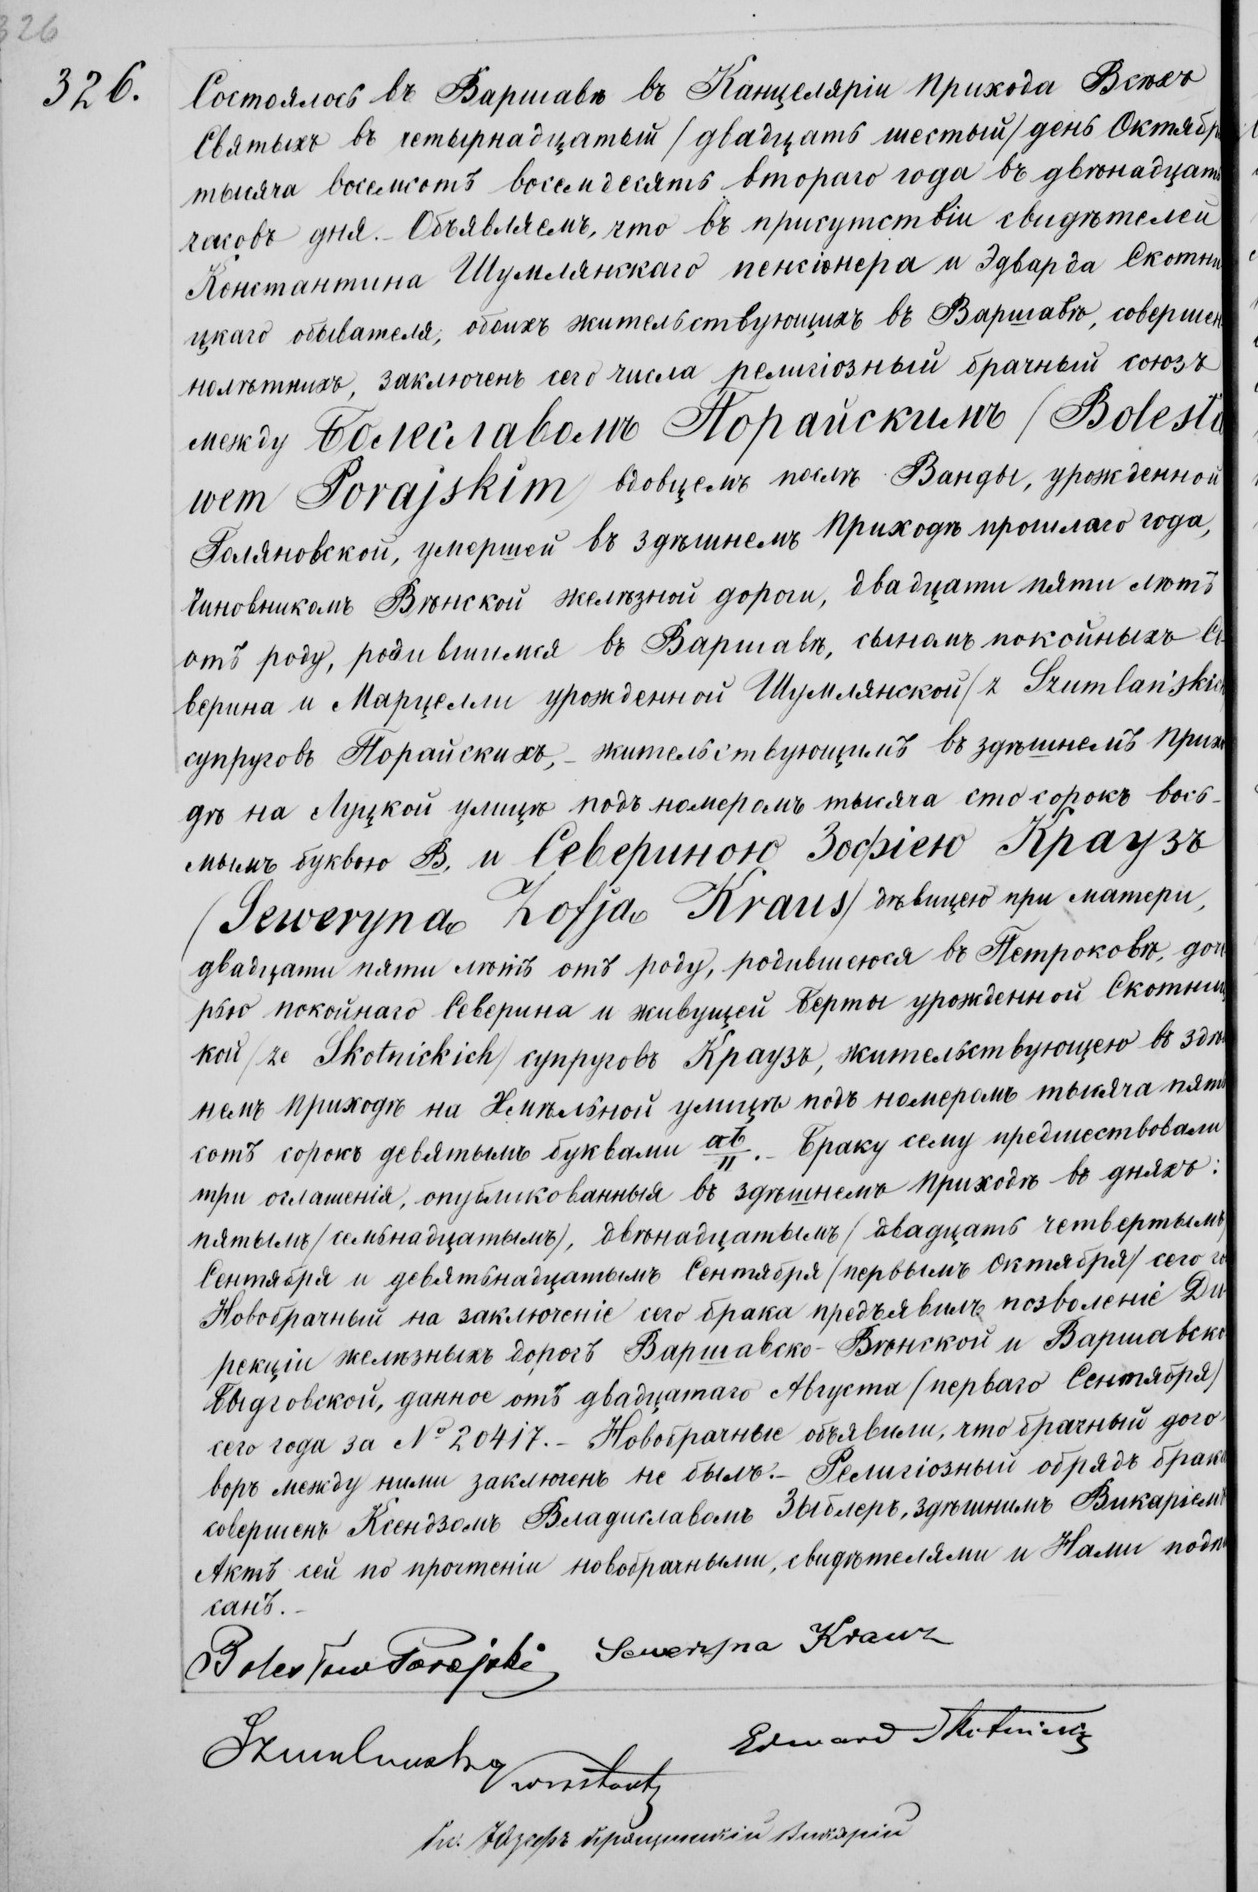 326
326.
Состоялось въ Варшавѣ въ Канцеляріи Прихода Всѣхъ
Святыхъ въ четырнадцатый / двадцать шестый / день Октябр
тысяча восемсотъ восемдесятъ втораго года въ двѣнадцать
часовъ дня. – Объявляемъ, что въ присутствіи свидѣтелей
Константина Шумлянскаго пенсіонера и Эдварда Скотни
цкаго обывателя, обоихъ жительствующихъ въ Варшавѣ, совершен
нолѣтнихъ, заключенъ сего числа религіозный брачный союзъ
между Болеславомъ Порайскимъ / Bolesła
wem Porajskim / вдовцемъ послѣ Ванды, урожденной
Голяновской, умершей въ здѣшнемъ Приходѣ прошлаго года,
чиновникомъ Вѣнской желѣзной дороги, двадцати пяти лѣтъ
отъ роду, родившимся въ Варшавѣ, сыномъ покойныхъ Се
верина и Марцелли урожденной Шумлянской / z Szumlańskich
супруговъ Порайскихъ, – жительствующимъ въ здѣшнемъ Прихо
дѣ на Луцкой улицѣ подъ номеромъ тысяча сто сорокъ вось-
мымъ буквою В, и Севериною Зофіею Краузъ
/ Seweryna Zofja Kraus / дѣвицею при матери,
двадцати пяти лѣтъ отъ роду, родившеюся въ Петроковѣ, доче
рью покойнаго Северина и живущей Берты урожденной Скотниц
кой / ze Skotnickich / супруговъ Краузъ, жительствующею въ здѣш
немъ Приходѣ на Хмѣльной улицѣ подъ номеромъ тысяча пять
сотъ сорокъ девятымъ буквами аб/II. – Браку сему предшествовали
три оглашенія, опубликованныя въ здѣшнемъ Приходѣ въ дняхъ:
пятымъ / семьнадцатымъ /, двѣнадцатымъ / двадцать четвертымъ /
Сентября и девятьнадцатымъ Сентября / первымъ Октября / сего го
Новобрачный на заключеніе сего брака предъявилъ позволеніе Ди
рекціи желѣзныхъ дорогъ Варшавско-Вѣнской и Варшавско
Быдговской, данное отъ двадцатаго Августа / перваго Сентября /
сего года за № 20417. – Новобрачные объявили, что брачный дого-
воръ между ними заключенъ не былъ. – Религіозный обрядъ брака
совершенъ Ксендзомъ Владиславомъ Зыблеръ, здѣшнимъ Викаріемъ
Актъ сей по прочтеніи новобрачными, свидѣтелями и Нами подпи
санъ. –
Bolesław Porajski Seweryna Krauz
Szumlański Konstanty Edward Skotnicki
Кс. Юзефъ Викарій